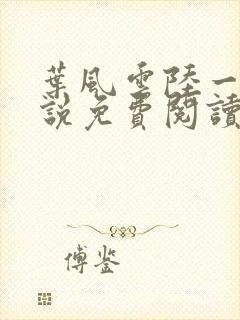 葉風雲陸一
說免費閱讀
傅鉴